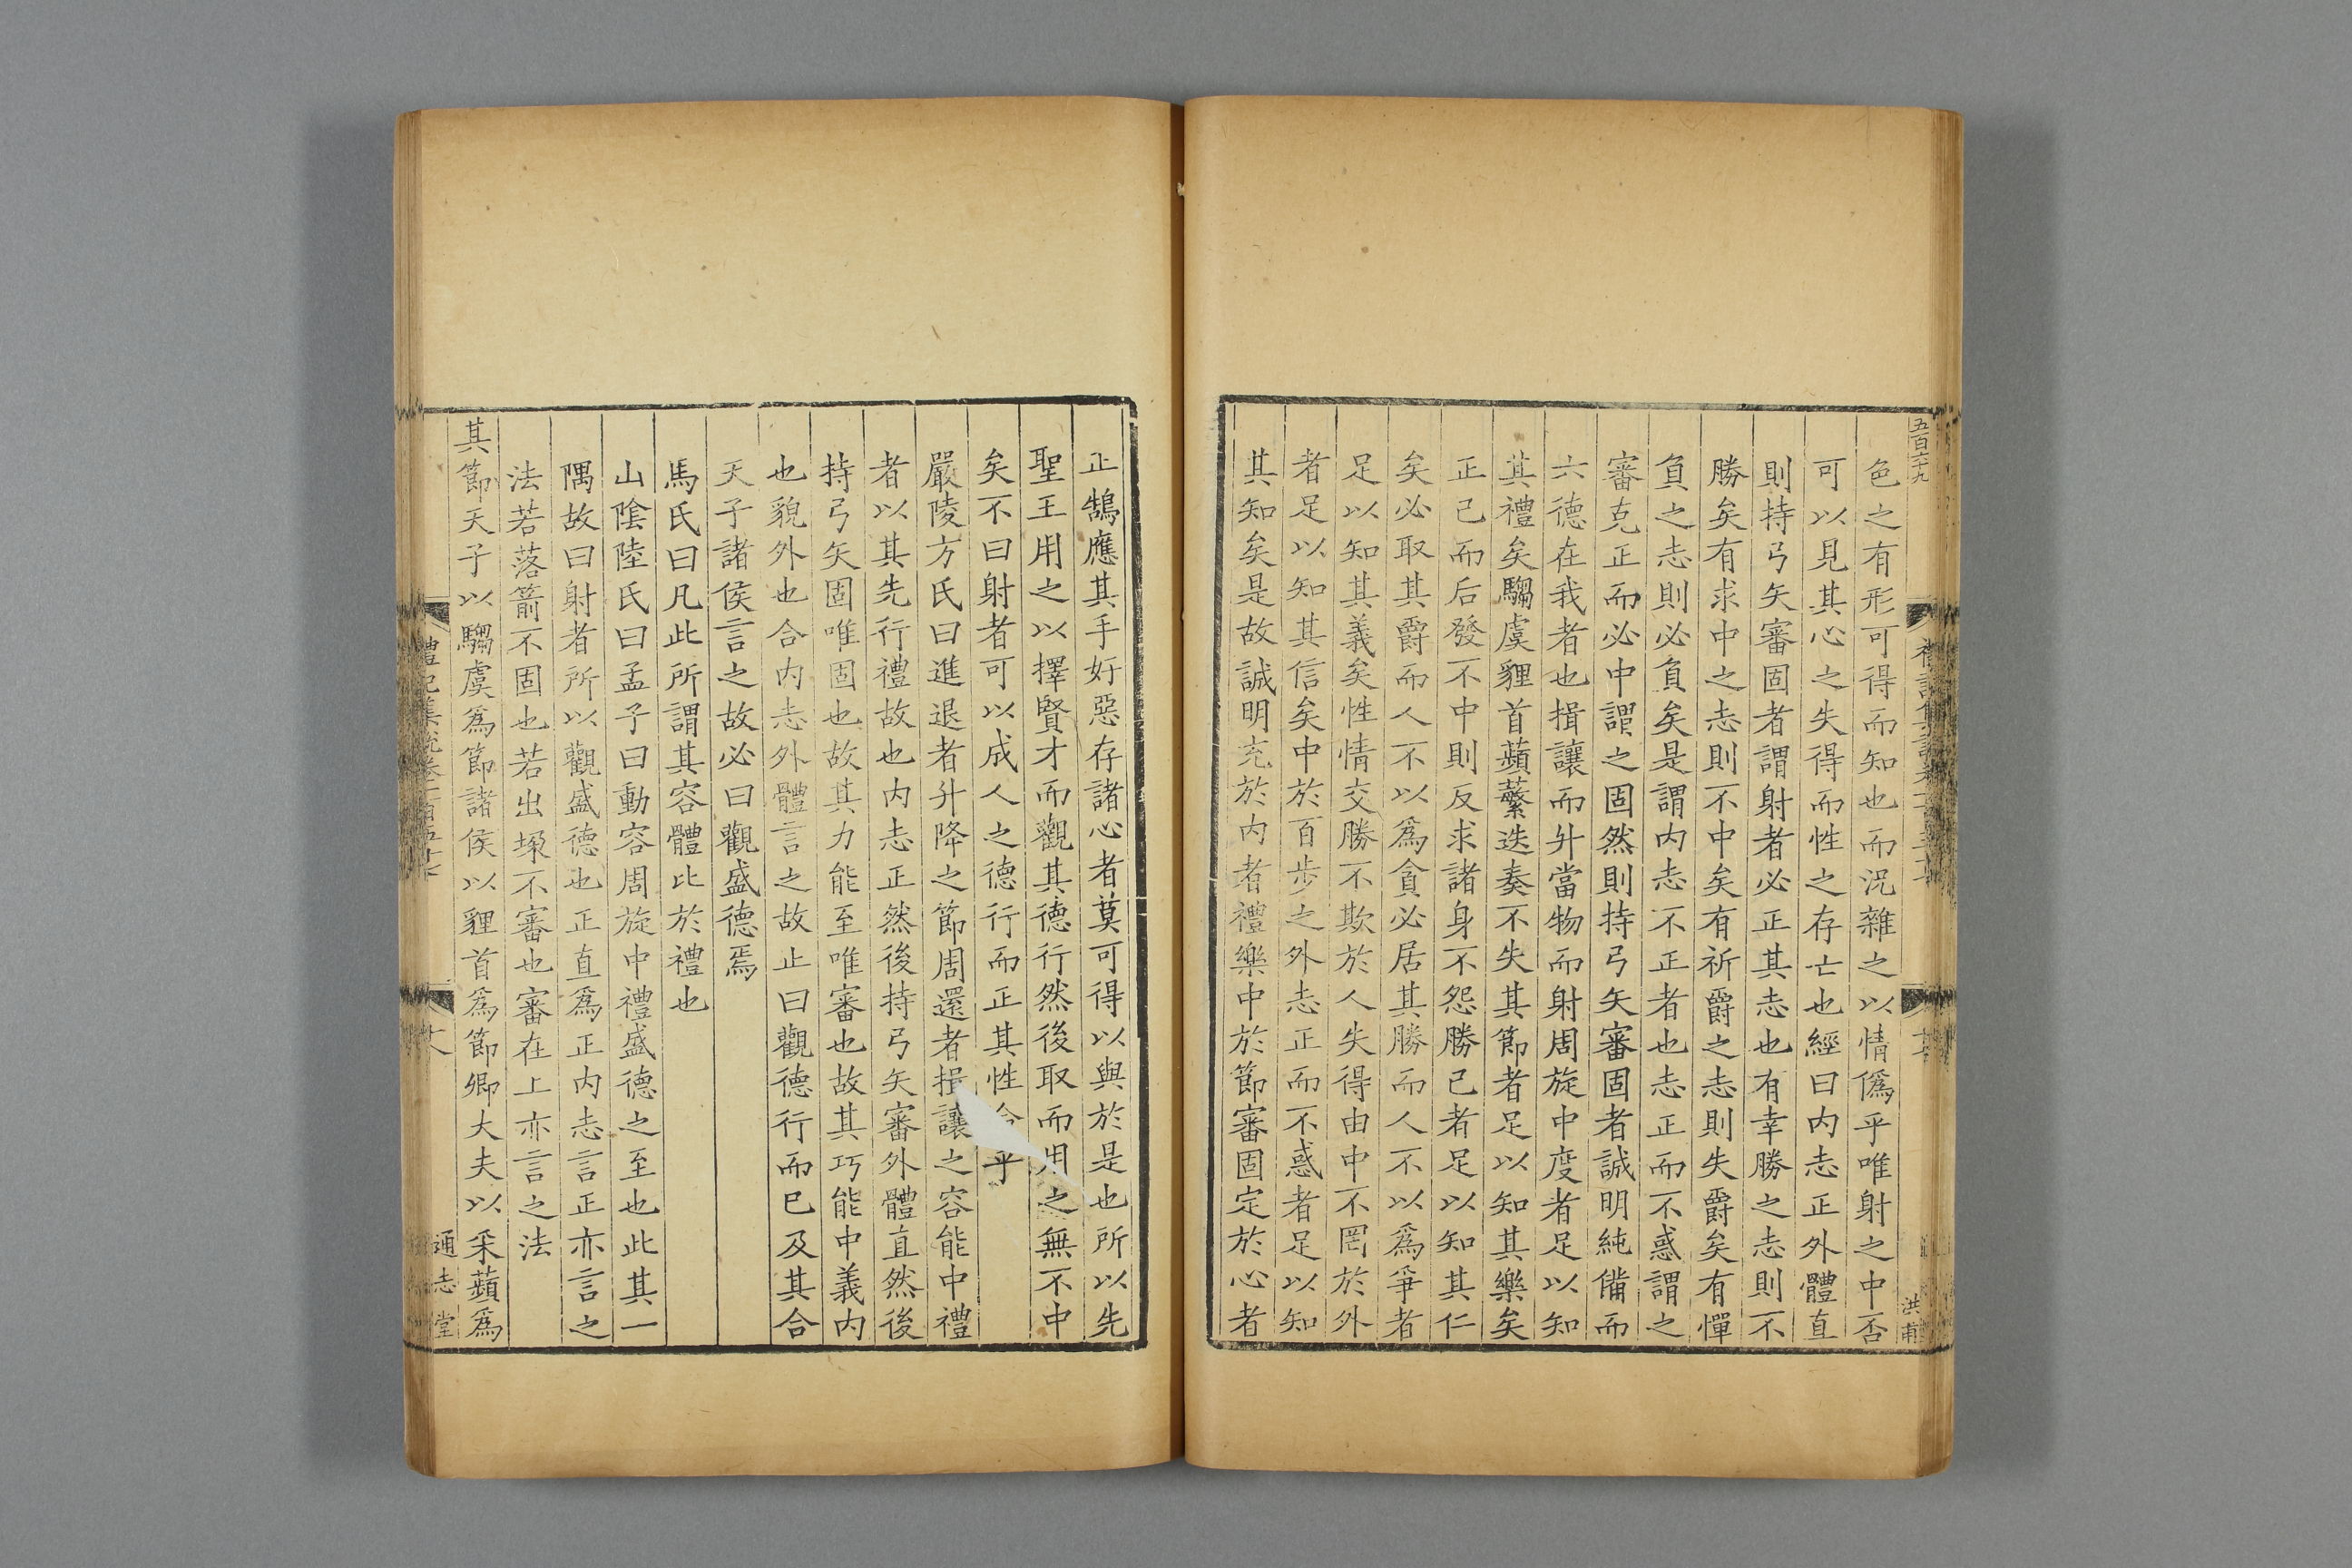 五百六十九
洪甫
色之有形可得而知也而況雜之以情僞乎唯射之中否
可以見其心之失得而性之存亡也經曰内志正外體直
則持弓矢審固者謂射者必正其志也有幸勝之志則不
勝矣有求中之志則不中矣有祈爵之志則失爵矣有憚
負之志則必負矣是謂内志不正者也志正而不惑謂之
審克正而必中謂之固然則持弓矢審固者誠明純備而
六德在我者也揖讓而升當物而射周旋中度者足以知
其禮矣騶虞貍首蘋蘩迭奏不失其節者足以知其樂矣
正己而后發不中則反求諸身不怨勝己者足以知其仁
矣必取其爵而人不以爲貪必居其勝而人不以爲爭者
足以知其義矣性情交勝不欺於人失得由中不罔於外
者足以知其信矣中於百步之外志正而不惑者足以知
其知矣是故誠明充於内者禮樂中於節審固定於心者
正鵠應其手好惡存諸心者莫可得以與於是也所以先
聖王用之以擇賢才而觀其德行然後取而用之無不中
矣不曰射者可以成人之德行而正其性命乎
嚴陵方氏曰進退者升降之節周還者揖讓之容能中禮
者以其先行禮故也内志正然後持弓矢審外體直然後
持弓矢固唯固也故其力能至唯審也故其巧能中義内
也貌外也合内志外體言之故止曰觀德行而已及其合
天子諸侯言之故必曰觀盛德焉
馬氏曰凡此所謂其容體比於禮也
山陰陸氏曰孟子曰動容周旋中禮盛德之至也此其一
隅故曰射者所以觀盛德也正直爲正内志言正亦言之
法若落箭不固也若出堁不審也審在上亦言之法
其節天子以騶虞爲節諸侯以貍首爲節卿大夫以采蘋爲
禮記集說卷一百五十七
通志堂